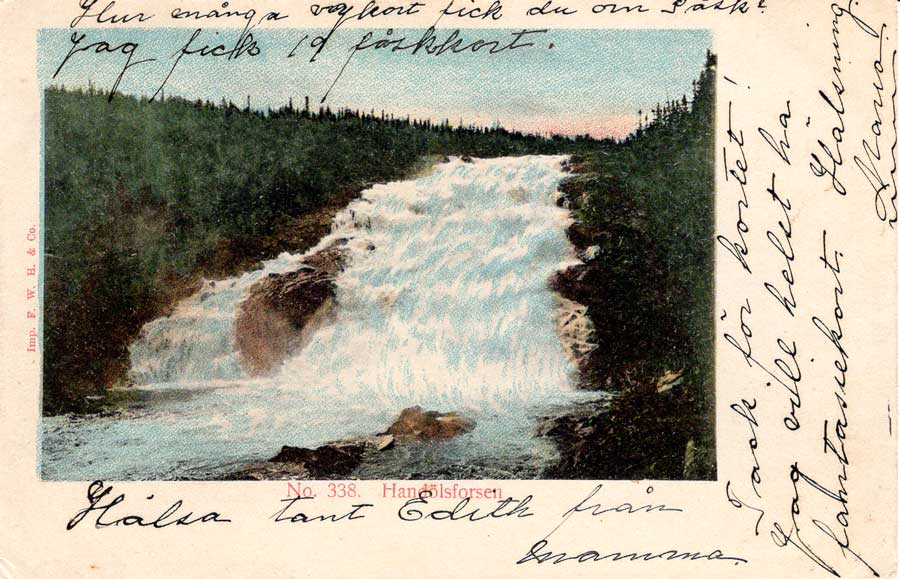 Hur många vykort fick du om Påsk?
Jag fick 19 påskkort.
Tack för kortet!
Jag vill helst ha
fantassekort. Hälsning
Maria
Imp. F. W. H. & Co.
No. 338. Handölsforsen
Hälsa tant Edith från
mamma.